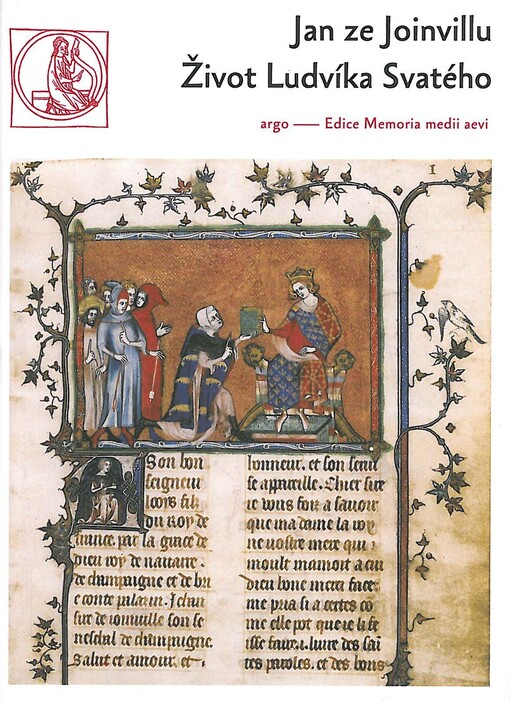 Jan ze Joinvillu
Život Ludvíka Svatého
argo — Edice Memoria medii aevi
I
A Son bon
seigneur
looys filz
du roy de
france par la grace de
dieu roy de nauarre.
de champaigne et de brie
conte palazin. Jehan
sire de ioinuille son se
neschal de champaigne.
Salut et amour. et
honneur. et son seruise
apareille. Chier sire
ie vous foiz a sauoir
que ma dame la royne
vostre mere qui
moult mamoit a cui
dieu bone merci face.
me pria si a certes co
me elle pot que ie li fe
isse faire .i. liure des saintes
paroles. et des bons